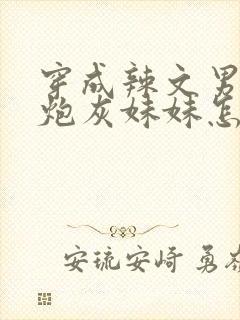 穿成辣文男
炮灰妹妹怎
安琉安崎 勇